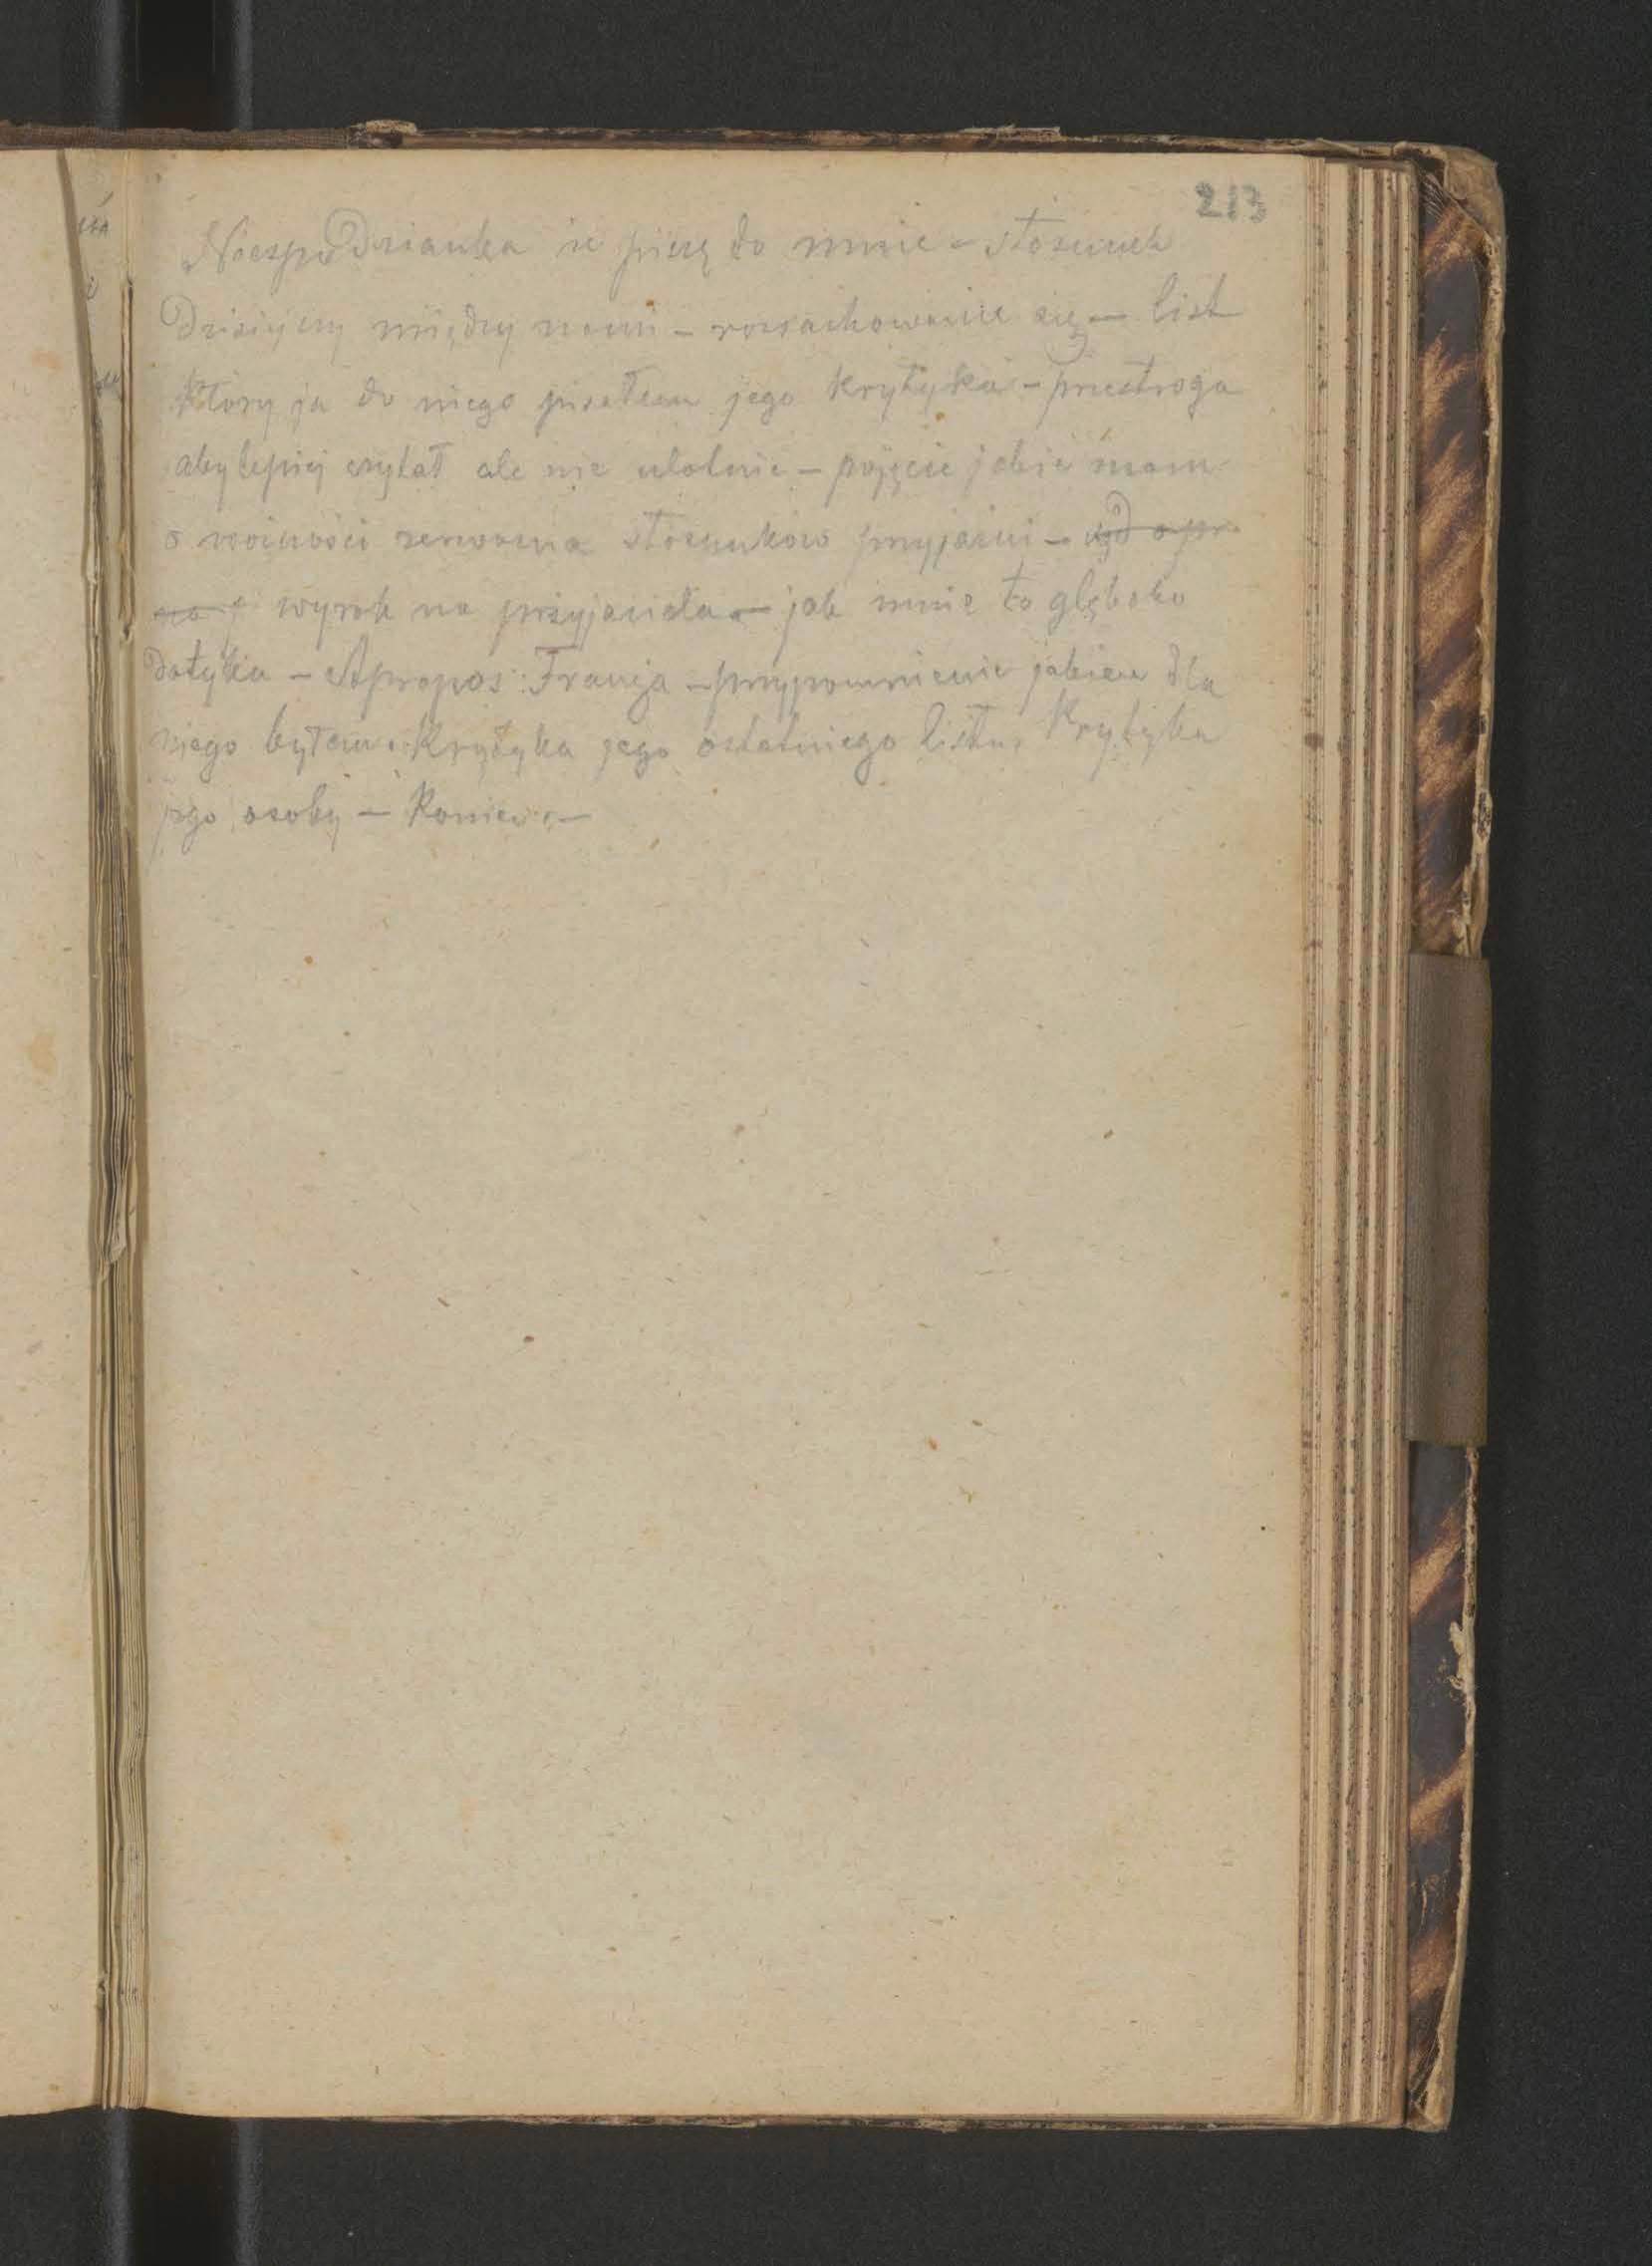 213
Niespodzianka że piszę do mnie - stosunek
Dzisiejszy między nami - rozczarowanie się - list
który ja do niego pisałem jego krytyka - przestroga
aby lepiej czytał ale nie ulotnie - pojęcie jakie mam
o możności zerwania stosunków przyjaźni -
wyrok na przyjaciela - jak mnie to głęboko
dotyka - Apropos: Francja - przypomnienie jakiem dla
niego byłem. Krytyka jego ostatniego listu. Krytyka
jego osoby - Koniec. -